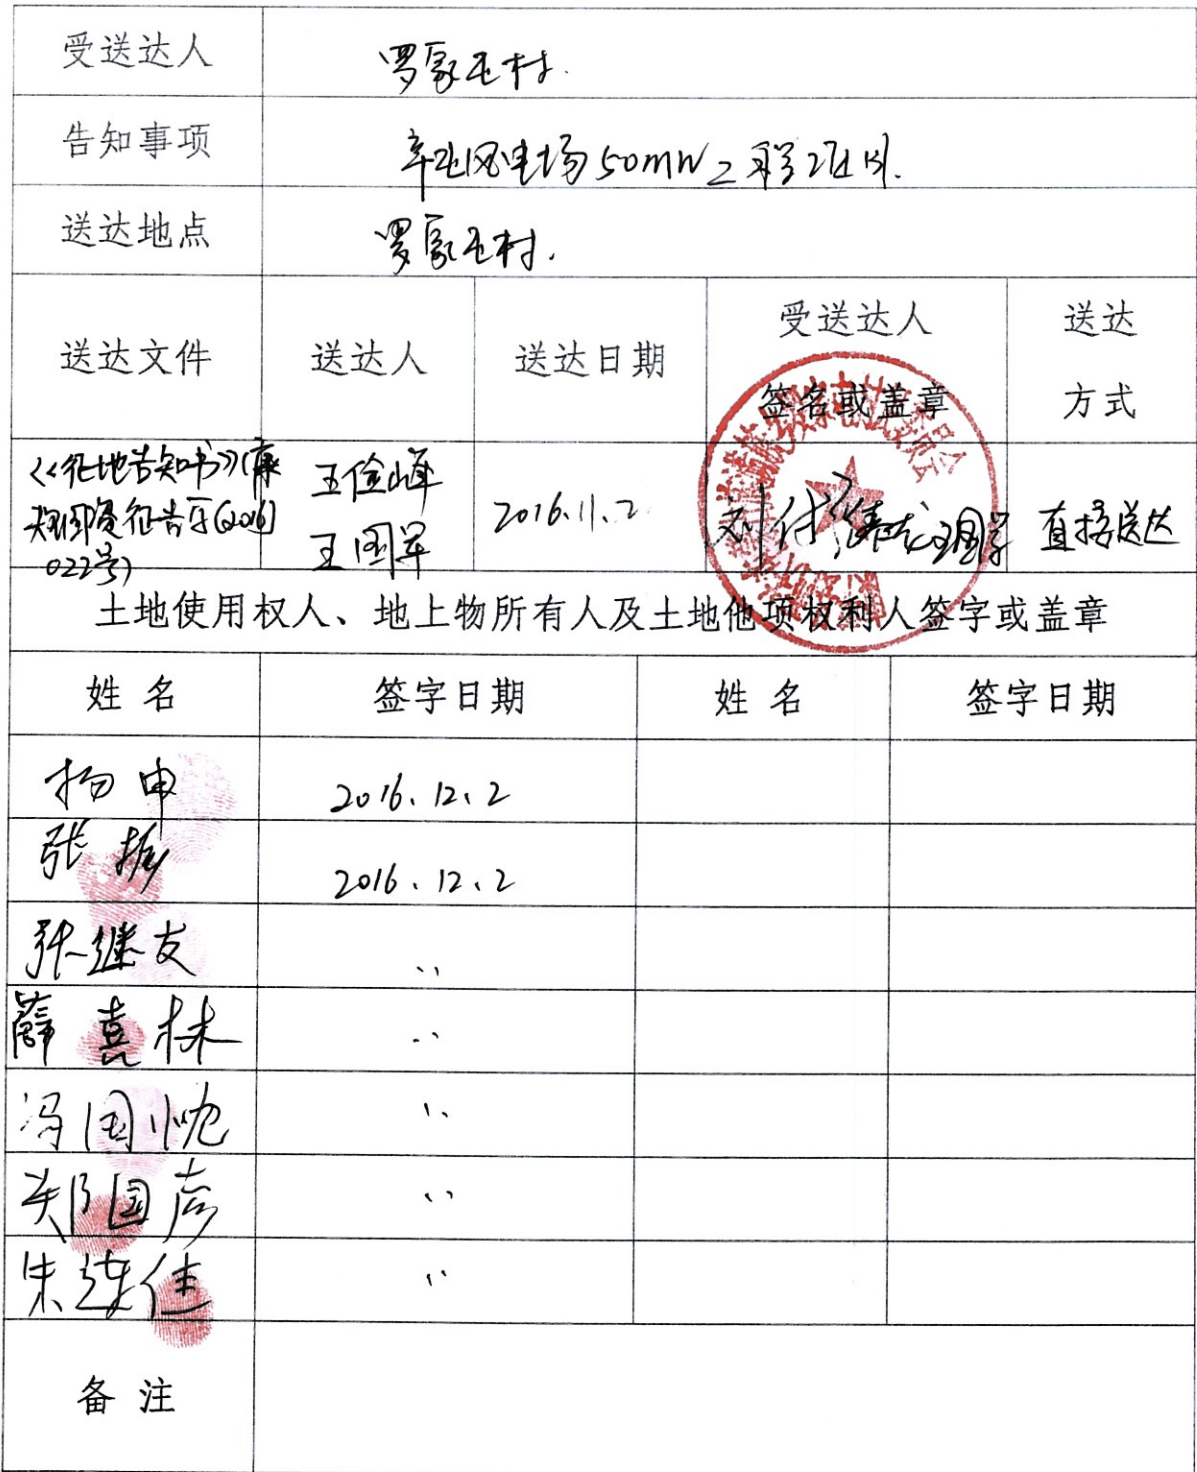 受送达人 罗家屯村.
告知事项 辛屯风电场50mW工程项目.
送达地点 罗家屯村.
送达文件 送达人 送达日期 受送达人 签名或盖章 送达 方式
《征地告知书》(康
国资征告字[2016]
022号)
王俭峰
王国军
2016.11.2
直接送达
土地使用权人、地上物所有人及土地他项权利人签字或盖章
姓名 签字日期 姓名 签字日期
杨申 2016.12.2
张振 2016.12.2
张继友 〃
薛喜林 〃
冯国忱 〃
郑国彦 〃
朱连佳 〃
备注